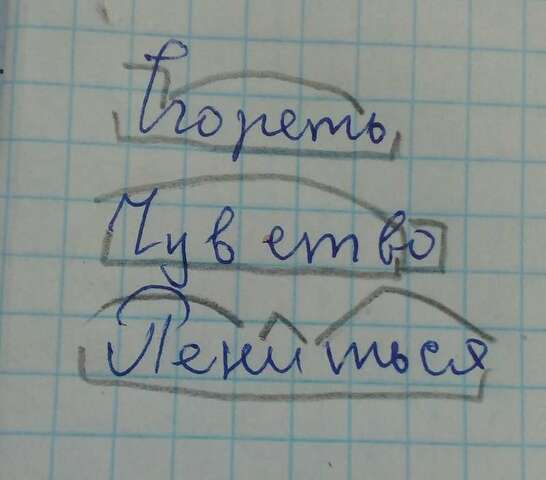 Сгореть
Чувство
Лениться